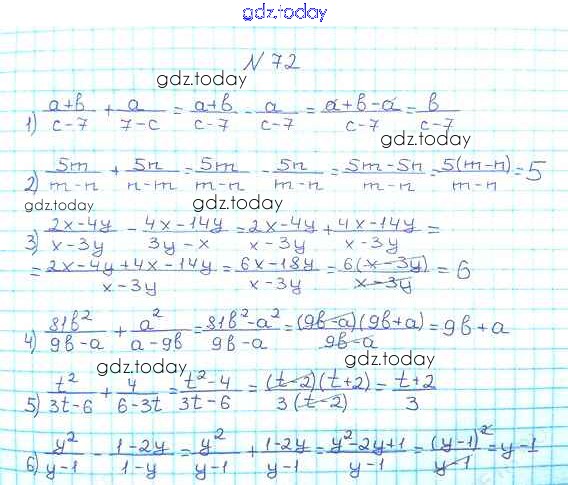 gdz.today
N 72
gdz.today
1) (a+b)/(c-7) + a/(7-c) = (a+b)/(c-7) - a/(c-7) = (a+b-a)/(c-7) = b/(c-7)
gdz.today
2) 5m/(m-n) + 5n/(n-m) = 5m/(m-n) - 5n/(m-n) = (5m-5n)/(m-n) = 5(m-n)/(m-n) = 5
gdz.today gdz.today
3) (2x-4y)/(x-3y) - (4x-14y)/(3y-x) = (2x-4y)/(x-3y) + (4x-14y)/(x-3y) =
= (2x-4y+4x-14y)/(x-3y) = (6x-18y)/(x-3y) = 6(x-3y)/(x-3y) = 6
4) 81b²/(9b-a) + a²/(a-9b) = (81b²-a²)/(9b-a) = (9b-a)(9b+a)/(9b-a) = 9b+a
gdz.today gdz.today
5) t²/(3t-6) + 4/(6-3t) = (t²-4)/(3t-6) = (t-2)(t+2)/3(t-2) = (t+2)/3
6) y²/(y-1) - (1-2y)/(1-y) = y²/(y-1) + (1-2y)/(y-1) = (y²-2y+1)/(y-1) = (y-1)²/(y-1) = y-1